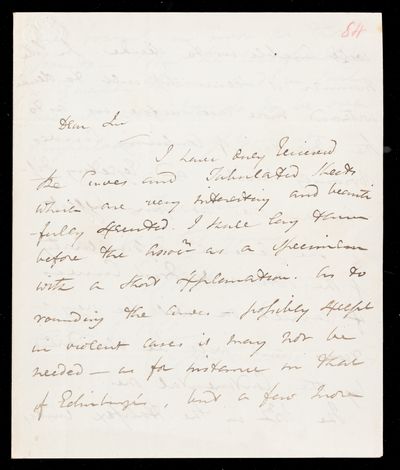 84
Dear Sir
I have only received
the Curves and Tabulated Sheets
which are very interesting and beauti
-fully executed. I shall lay them
before the Assocn as a Specimen
with a short explanation. As to
rounding the curves - possibly except
in violent cases it may not be
needed - as for instance in that
of Edinburgh, but a few more